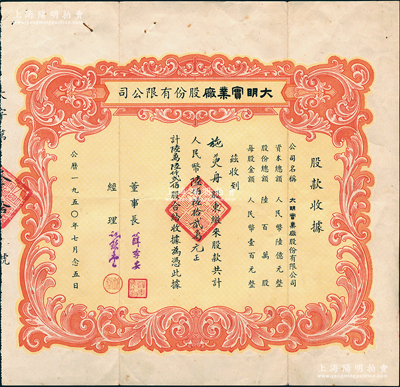 上海陽明拍賣
大明實業廠股份有限公司
股款收據
公司名稱 大明實業廠股份有限公司
資本總額 人民幣陸億元整
股份總額 陸百萬股
每股金額 人民幣壹百元整
茲收到
施奐舟股東繳來股款共計
人民幣陸佰陸拾貳萬元正
計陸萬陸仟貳佰股合給收據為憑此據
董事長
經理
公曆一九五〇年七月念五日
號
上海陽明拍賣